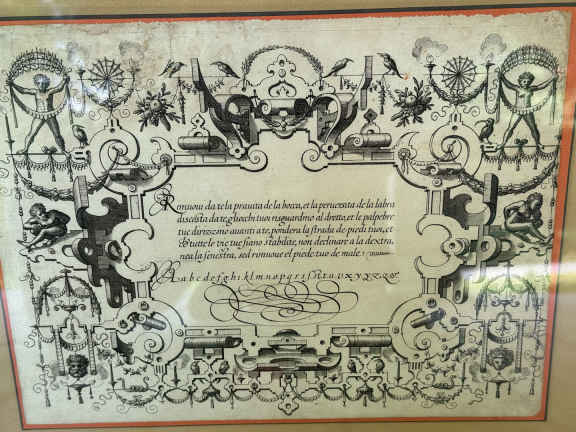 Rimuovi da te la prauita de la bocca, et la peruersita de la labra
discosta da te, gliochi tuoi risguardino al dritto, et le palpebre
tue dirizzino auanti a te, pondera la strada de piedi tuoi, et
tutte le vie tue siano stabilite, non declinare a la dextra,
ne a la senestra, sed rimuoue el piede tuo de male.
A a b c d e f g h i k l m n o p q r s t u v x y z